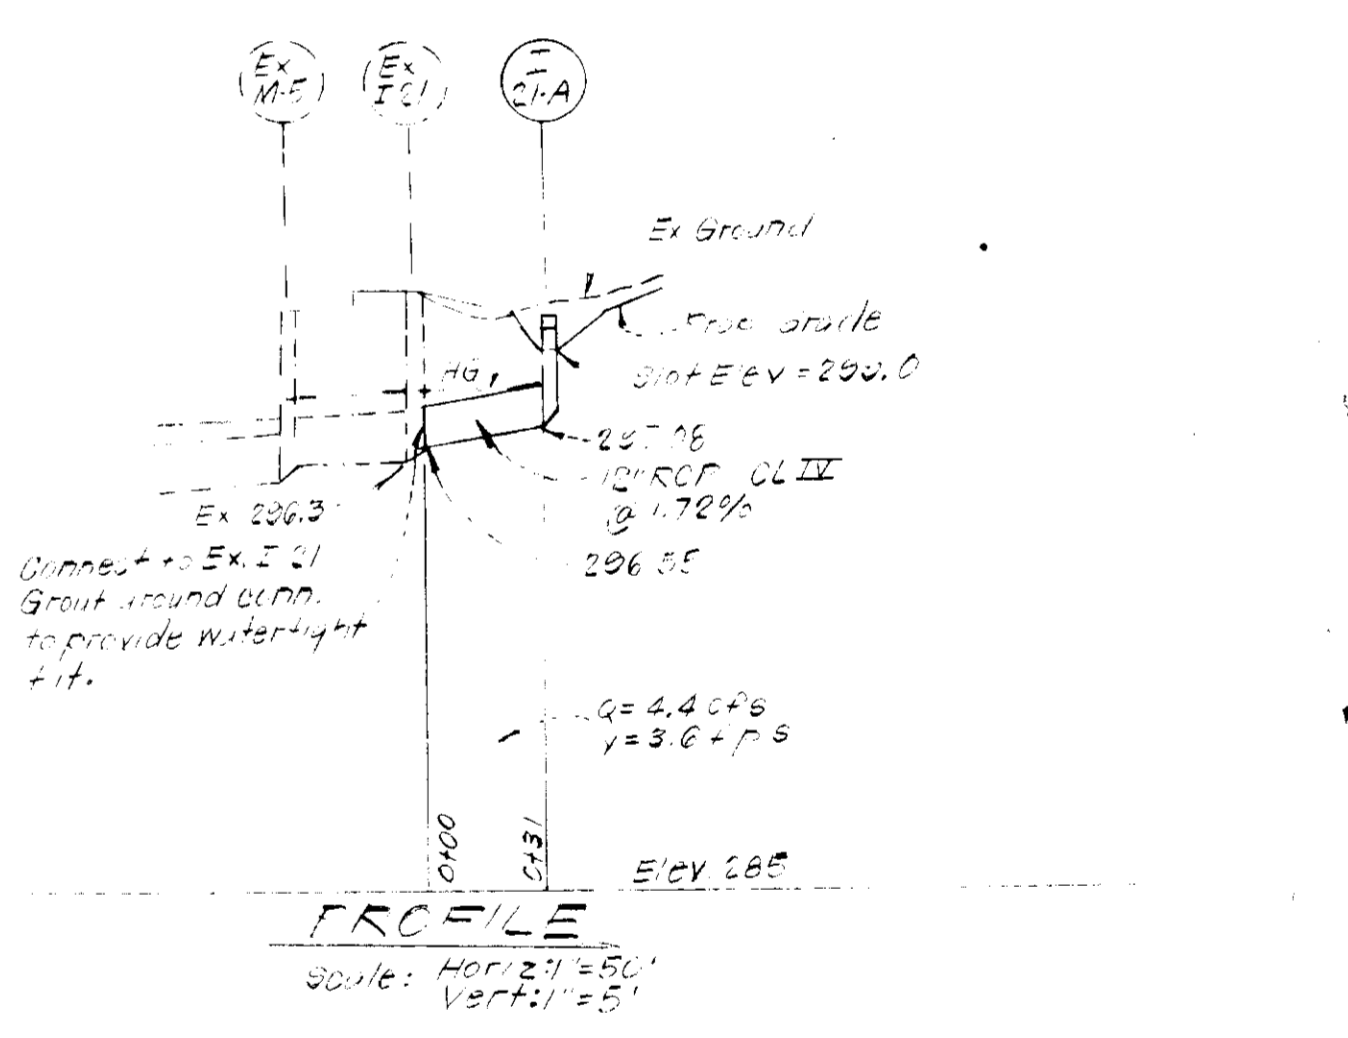 Ex
M-5
Ex
I 21
I
21-A
Ex Ground
Prop Grade
Slot Elev = 299.0
HG
297.08
12" RCP CL IV
@ 1.72%
Ex 296.3
296.55
Connect to Ex. I 21
Grout around conn.
to provide watertight
fit.
Q = 4.4 cfs
V = 3.6 fps
0+00
0+31
Elev. 285
PROFILE
Scale: Horiz: 1" = 50'
Vert: 1" = 5'